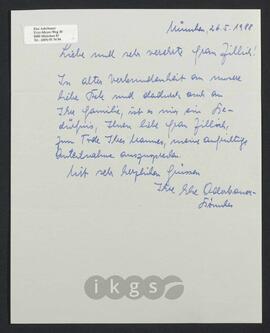 Else Aderbauer
8000 München
München, 26.5.1988
Liebe und sehr verehrte Frau Zillich!
In alter Verbundenheit an unsere
liebe und dadurch auch an
Ihre Familie, ist es mir ein Be-
dürfnis, Ihnen liebe Frau Zillich,
zum Tode Ihres Mannes, meine aufrichtige
Anteilnahme auszusprechen.
Mit sehr herzlichen Grüssen
Ihre Else Aderbauer-
ikgs